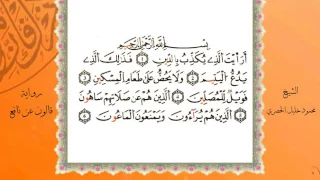 بِسْمِ اللَّهِ الرَّحْمَٰنِ الرَّحِيمِ
أَرَيْتَ الَّذِي يُكَذِّبُ بِالدِّينِ ١ فَذَٰلِكَ الَّذِي
يَدُعُّ الْيَتِيمَ ٢ وَلَا يَحُضُّ عَلَىٰ طَعَامِ الْمِسْكِينِ ٣
فَوَيْلٌ لِّلْمُصَلِّينَ ٤ الَّذِينَ هُمْ عَن صَلَاتِهِمْ سَاهُونَ
٥ الَّذِينَ هُمْ يُرَاءُونَ وَيَمْنَعُونَ الْمَاعُونَ ٦
الشيخ
محمود خليل الحصري
رواية
قالون عن نافع